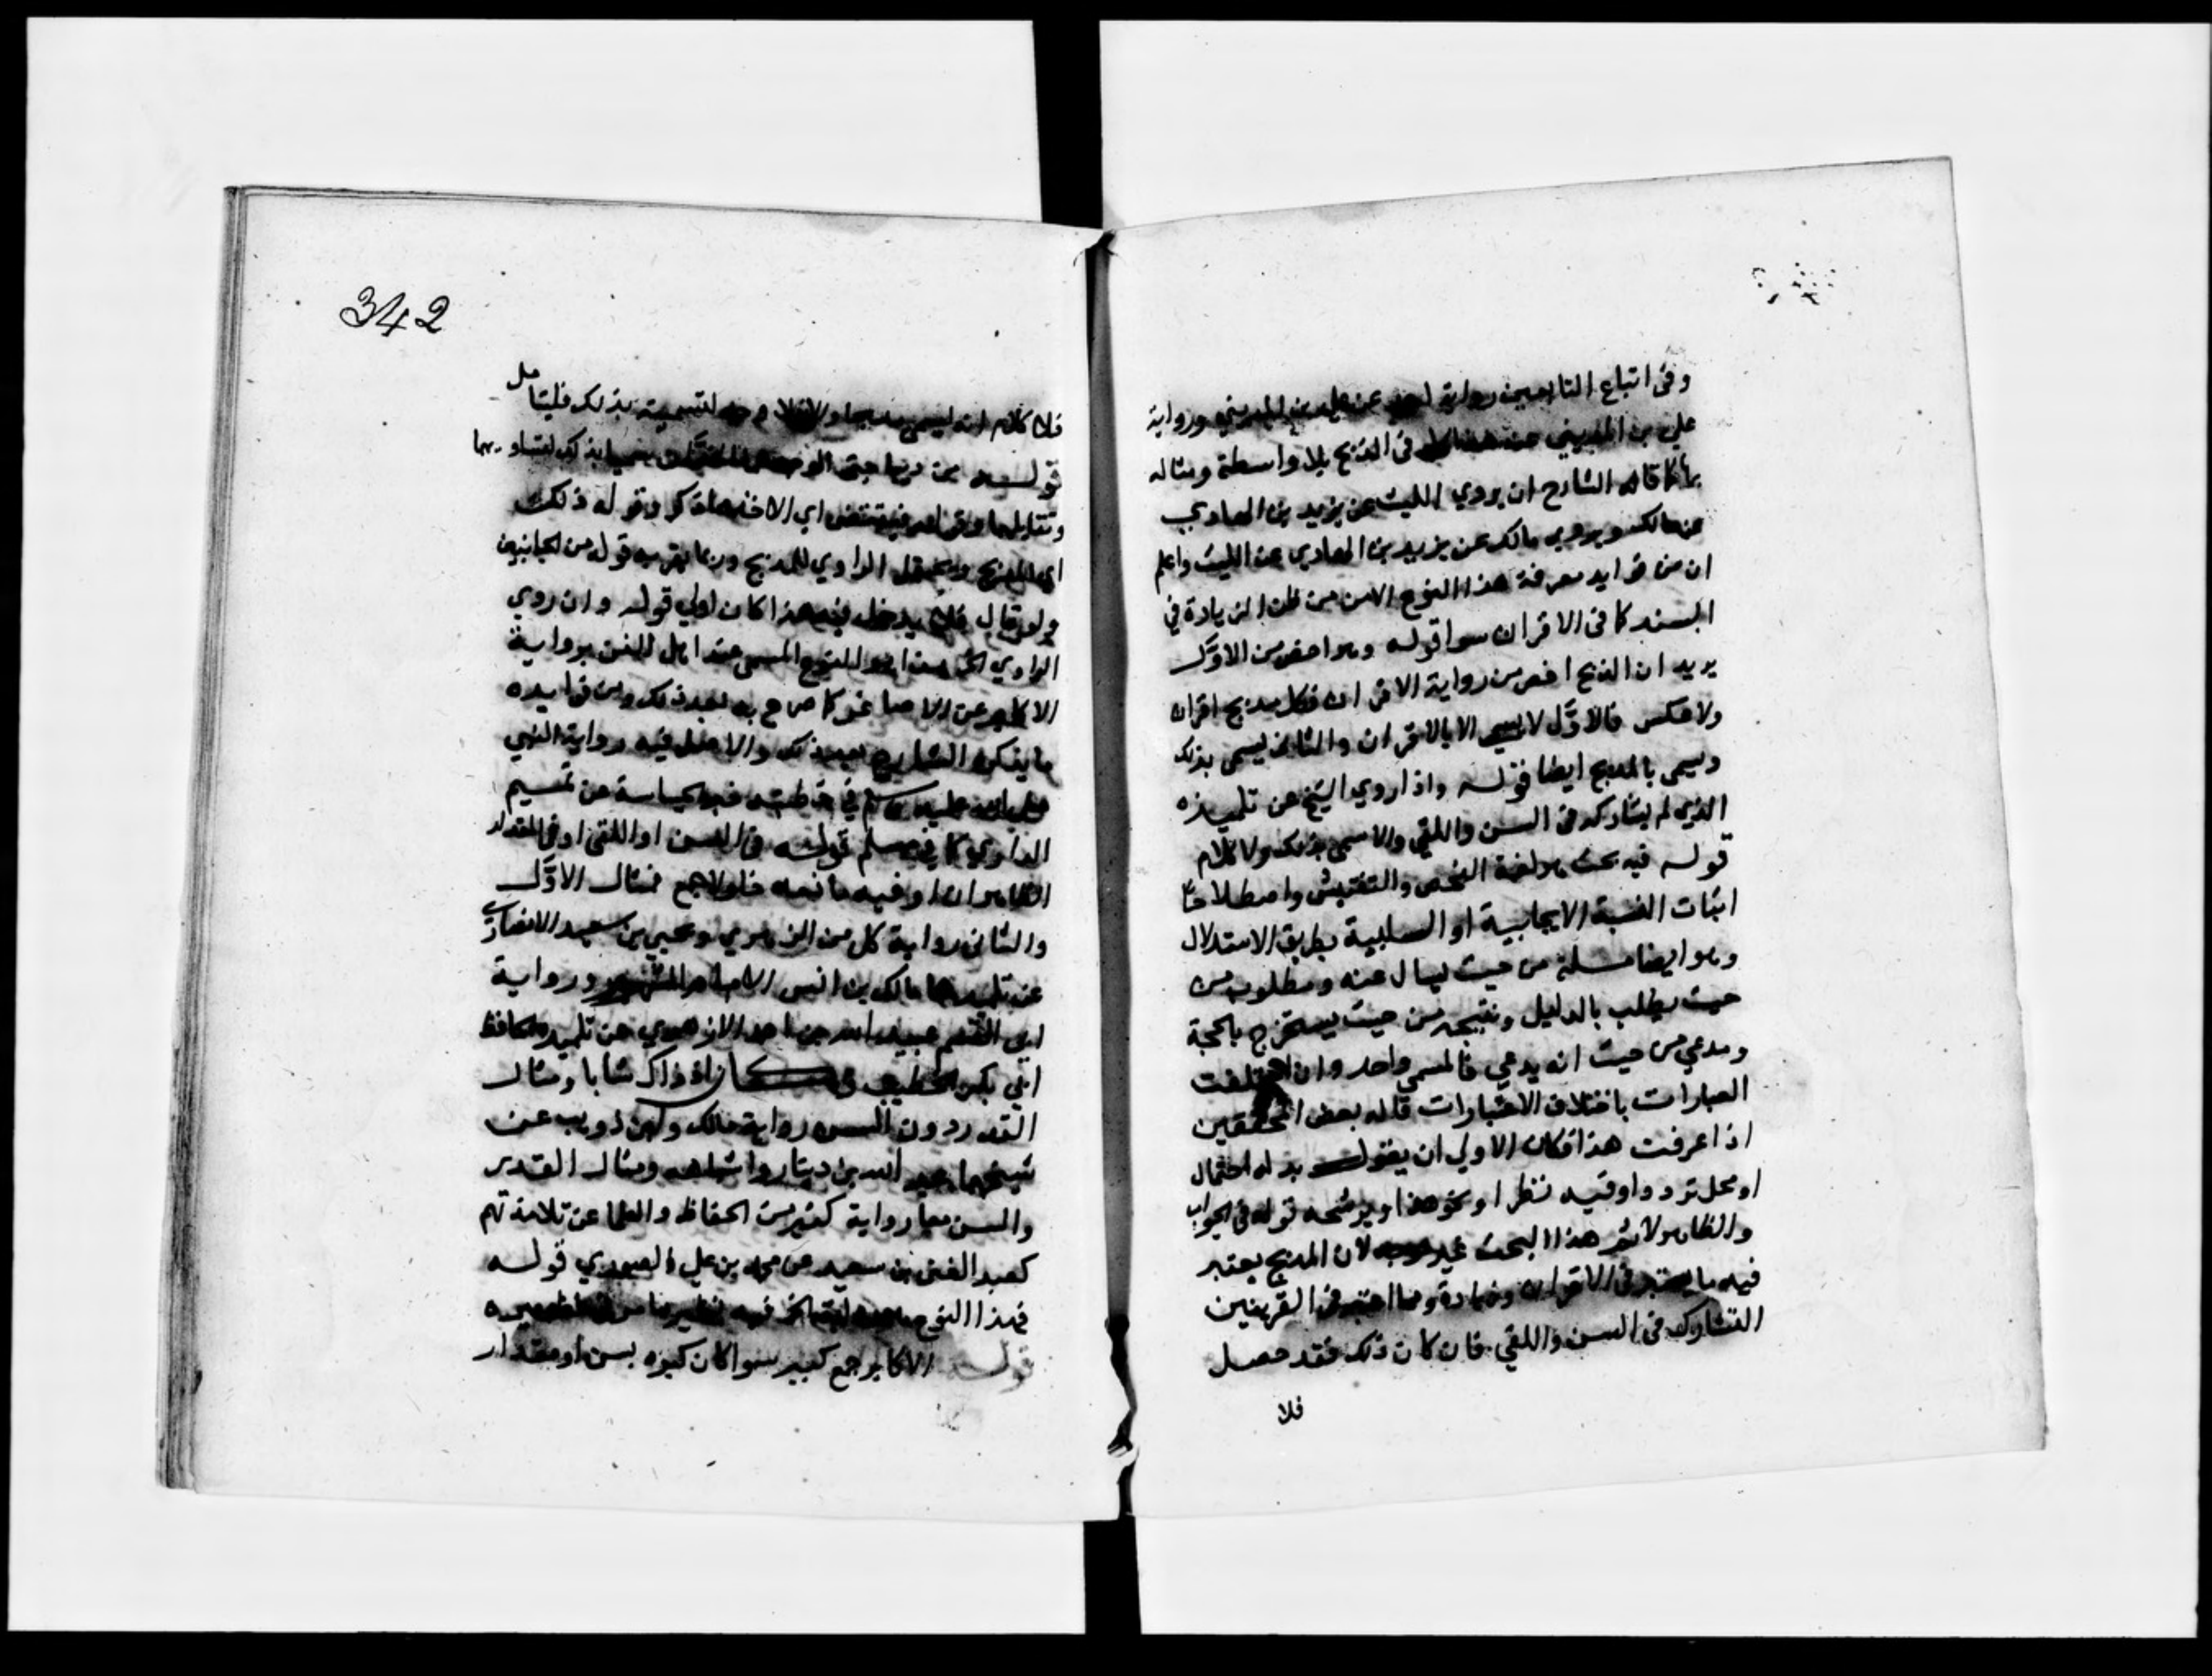 وفى اتباع التابعين رواية احمد عن علي بن المديني ورواية
علي بن المديني عنه فى المدبج بلا واسطة ومثاله
بها كما قاله الشارح ان يروي الليث عن يزيد بن الهادي
عن مالك ويروي مالك عن يزيد بن الهادي عن الليث واعلم
ان من فوايد معرفة هذا النوع الامن من ظن الزيادة في
السند كما فى الاقران سوا قوله وهو اخص من الاول
يريد ان المدبج اخص من رواية الاقران فكل مدبج اقران
ولا عكس فالاول لا يسمى الا بالاقران والثاني يسمى بذلك
ويسمى بالمدبج ايضا قوله واذا روي الشيخ عن تلميذه
الذي لم يشاركه فى السن واللقي والا سمي بذلك ولا كلام
قوله فيه بحث هو لغة الفحص والتفتيش واصطلاحا
اثبات النسبة الايجابية او السلبية بطريق الاستدلال
وهو ايضا مسلة من حيث يسال عنه ومطلوب من
حيث يطلب بالدليل ونتيجة من حيث يستخرج بالحجة
ومدعي من حيث انه يدعي فالمسمى واحد وان اختلفت
العبارات باختلاف الاعتبارات قاله بعض المحققين
اذا عرفت هذا فكان الاولي ان يقول بدله احتمال
او محل تردد او فيه نظر او نحو هذا ويرشحه قوله فى الجواب
والظاهر لا ثم هذا البحث غير موجه لان المدبج يعتبر
فيه ما يعتبر فى الاقران وزيادة ومما اعتبر فى القرينين
التشارك فى السن واللقي فان كان ذلك فقد حصل
فلا
342
فلا كلام انه ليس مدبجا والا فلا وجه لتسميته بذلك فليتامل
قوله من ديباجتى الوجه بذلك لتساويهما
وتقابلهما وقوله فيقتضي اي الاخذ ما ذكر وقوله ذلك
اي المدبج ويحتمل الراوي للمدبج وربما يقربه قوله من الجانبين
ولو قال فلا يدخل فيه هذا كان اولي قوله وان روي
الراوي الخ هذا هو النوع المسمى عند اهل الفن برواية
الاكابر عن الاصاغر كما صرح به بعد ذلك ومن فوايده
ما يذكره الشارح بعد ذلك والاصل فيه رواية النبي
صلى الله عليه وسلم في خطبته خبر الجساسة عن تميم
الداري كما في مسلم قوله فى السن او اللقى او فى المقدار
الظاهر ان او فيه مانعة خلو لا جمع فمثال الاول
والثانى رواية كل من الزهري ويحيى بن سعيد الانصاري
عن تلميذهما مالك بن انس الامام المشهور ورواية
ابى القسم عبيد الله بن احمد الازهري عن تلميذه الحافظ
ابي بكر الخطيب وكان اذ ذاك شابا ومثال
القدر دون السن رواية مالك وابن ذويب عن
شيخهما عبد الله بن دينار واشباهه ومثال القدر
والسن معا رواية كثير من الحفاظ والعلما عن تلامذتهم
كعبد الغنى بن سعيد عن محمد بن علي الصوري قوله
فهذا النوع الخ فيه نظير ما مر
قوله الاكابر جمع كبير سوا كان كبره بسن او مقدار